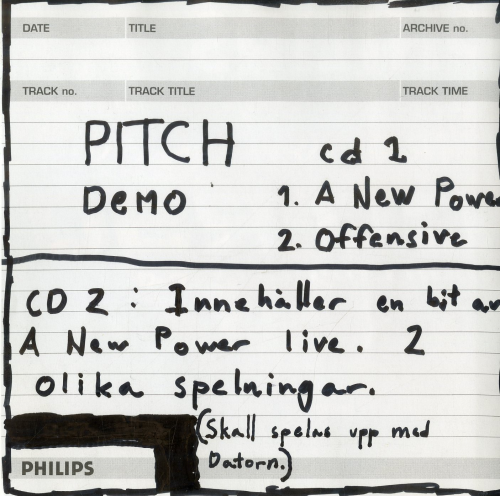 DATE TITLE ARCHIVE no.
TRACK no. TRACK TITLE TRACK TIME
PITCH
DEMO
cd 1
1. A New Power
2. Offensive
CD 2 : Innehåller en bit av
A New Power live. 2
olika spelningar.
(Skall spelas upp med
Datorn.)
PHILIPS